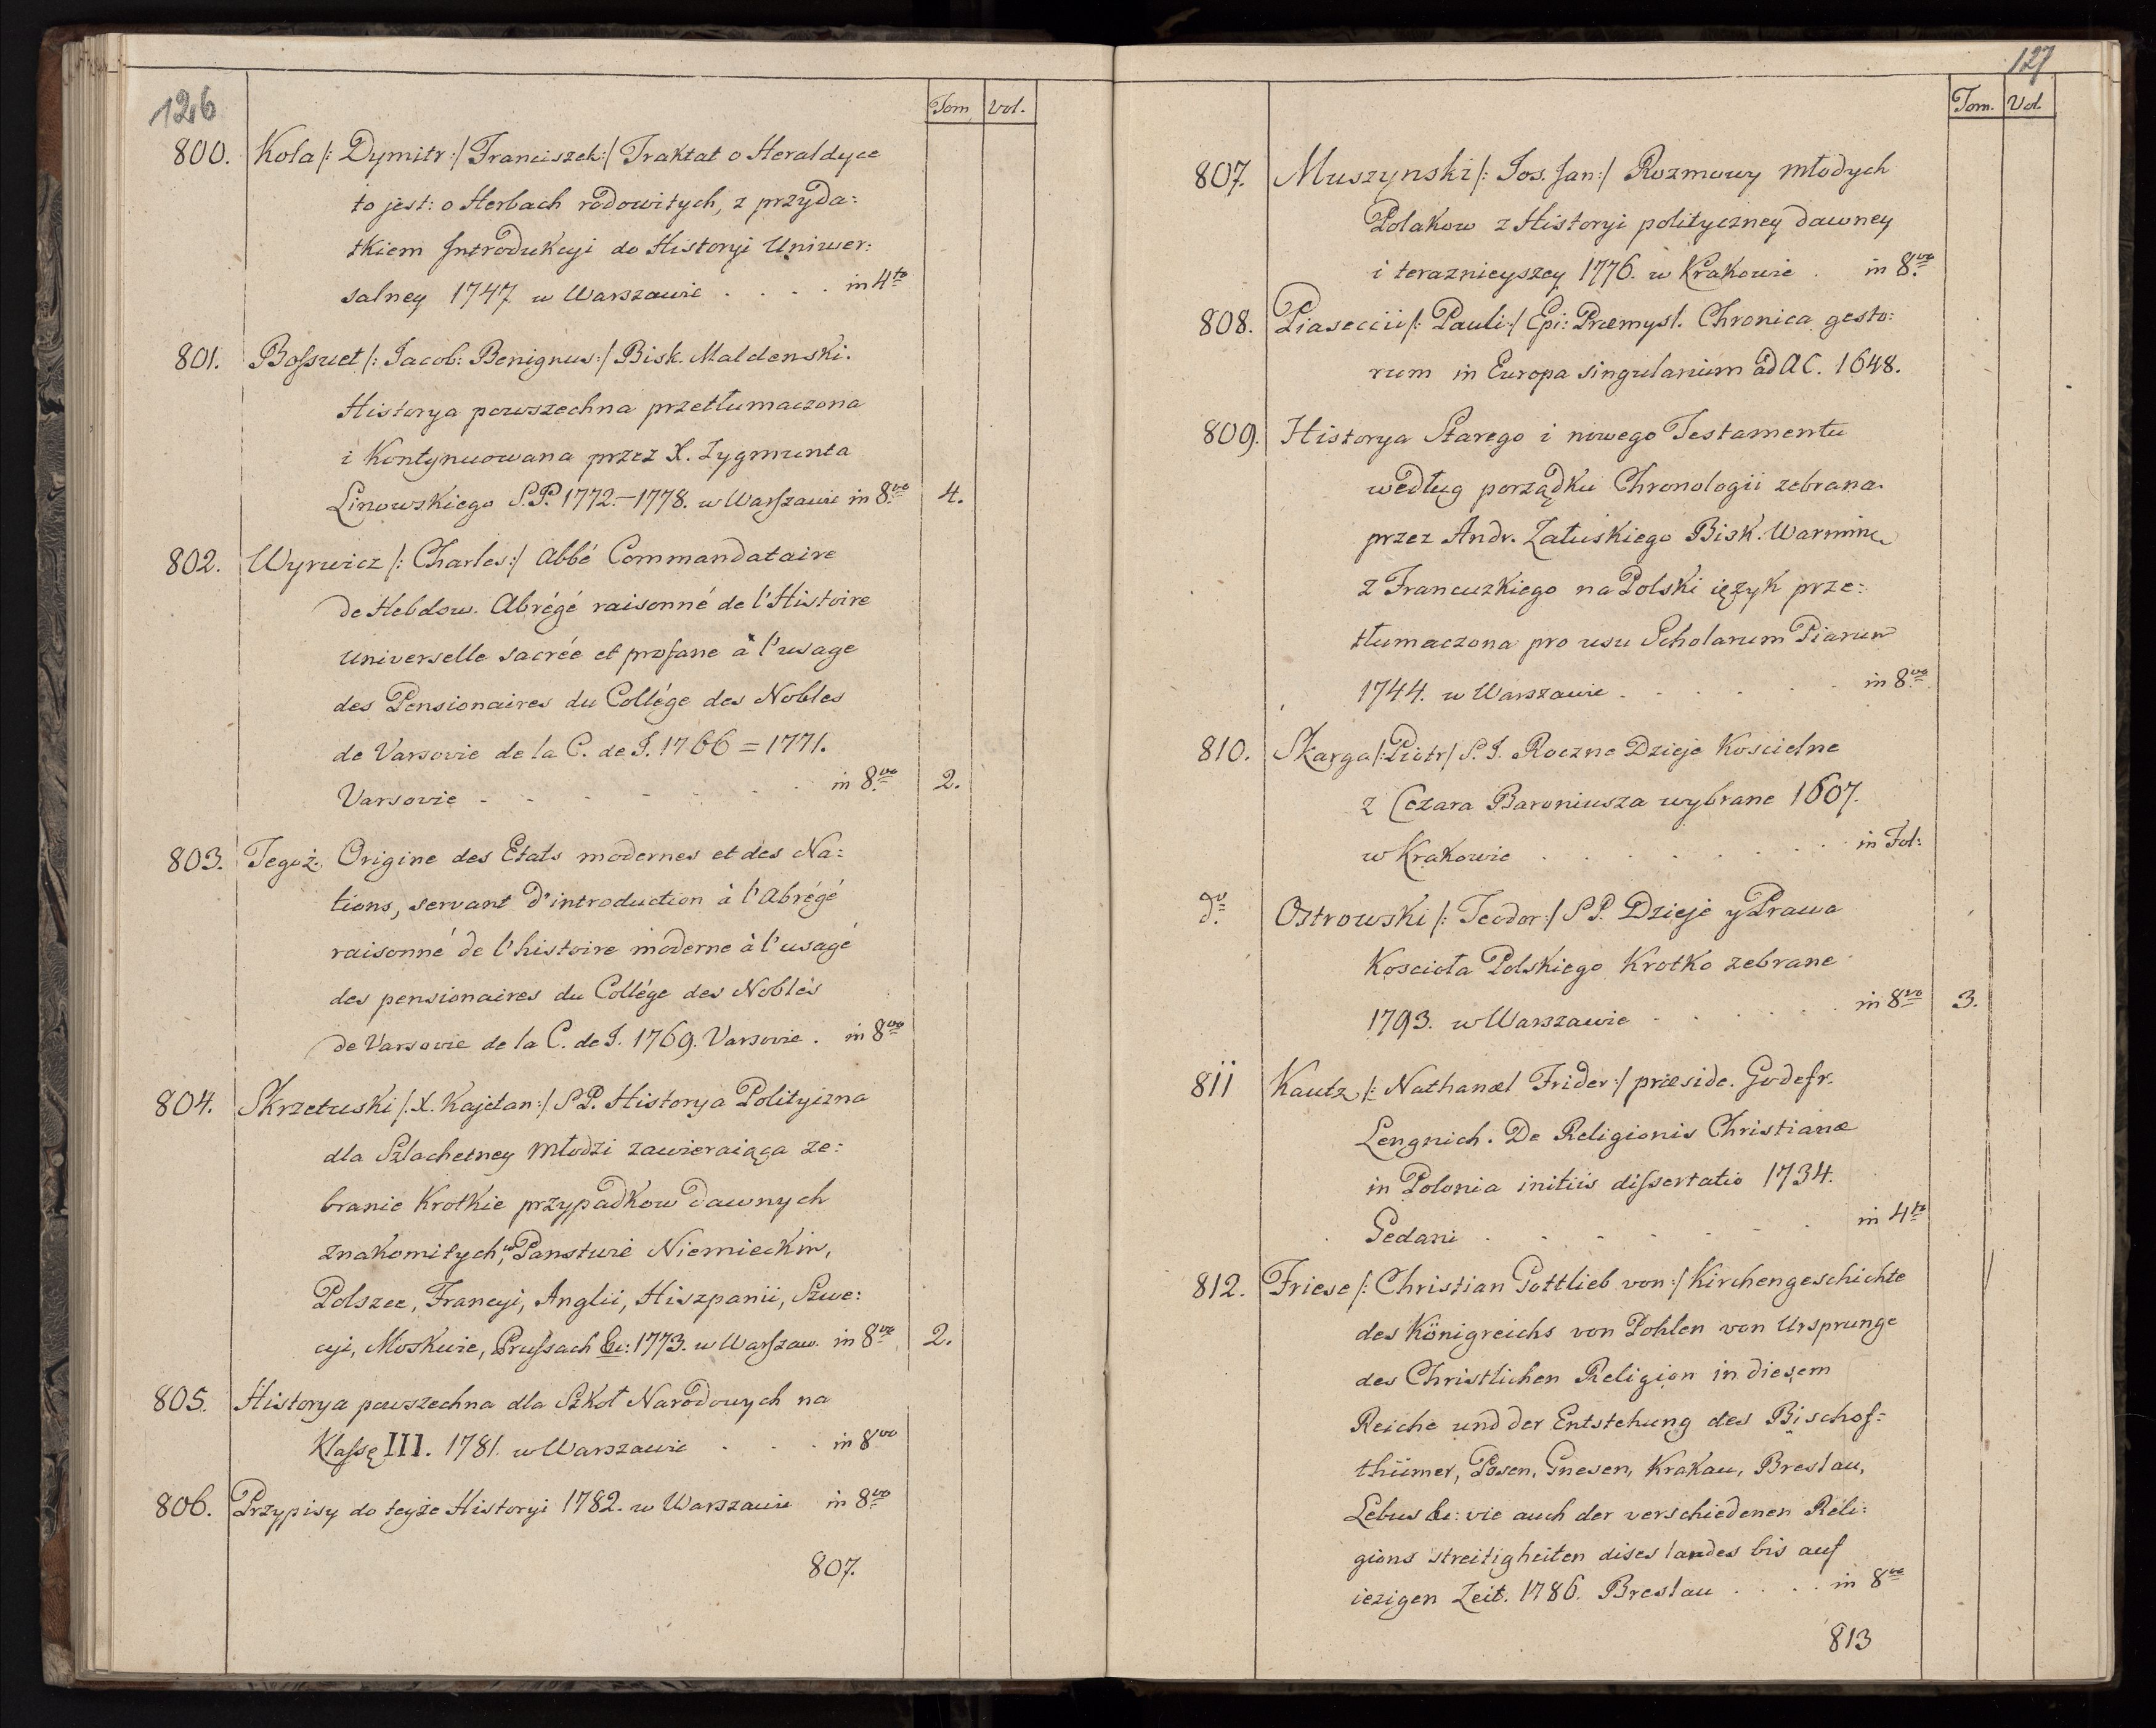 126
Tom. Vol.
800. Kola /: Dymitr :/ Franciszek :/ Traktat o Heraldyce
to jest: o Herbach rodowitych, z przyda:
tkiem Introdukcyi do Historyi Uniwer:
salney 1747 w Warszawie . . . . in 4to
801. Boſsuet /: Jacob: Benignus :/ Bisk. Maldenski.
Historya powszechna przetłumaczona
i kontynuowana przez X. Zygmunta
Linowskiego S.P. 1772.–1778. w Warſzawie in 8vo 4.
802. Wyrwicz /: Charles :/ Abbé Commandataire
de Hebdow. Abrégé raisonné de l'Histoire
universelle sacrée et profane à l'usage
des Pensionaires du Collége des Nobles
de Varsovie de la C. de J. 1766 = 1771.
Varsovie - - - - - - - in 8vo 2.
803. Tegoż. Origine des Etats modernes et des Na:
tions, servant d'introduction à l'Abrégé
raisonné de l'histoire moderne à l'usagé
des pensionaires du Collége des Nobles
de Varsovie de la C. de J. 1769. Varsovie . in 8vo
804. Skrzetuski /: X. Kajetan :/ S P. Historya Polityczna
dla Szlachetney Młodzi zawieraiąca ze:
branie krotkie przypadkow dawnych
znakomitych, w Panstwie Niemieckim,
Polszce, Francyi, Anglii, Hiszpanii, Szwe:
cyi, Moskwie, Pruſsach &c: 1773. w Warſzaw. in 8vo 2.
805. Historya powszechna dla Szkoł Narodowych na
Klaſsę III. 1781. w Warszawie . . . in 8vo
806. Przypisy do teyże Historyi 1782. w Warszawie in 8vo
807.
127
Tom. Vol.
807. Muszynski /: Jos. Jan :/ Rozmowy młodych
Polakow z Historyi polityczney dawney
i teraznieyszey 1776. w Krakowie . in 8vo
808. Piaseccii /: Pauli :/ Epi: Præmysl. Chronica gesto:
rum in Europa singularium ad AC. 1648.
809. Historya Starego i nowego Testamentu
według porządku Chronologii zebrana
przez Andr. Załuskiego Bisk. Warmin.
z Francuzkiego na Polski ięzyk prze:
tłumaczona pro usu Scholarum Piarum
1744. w Warszawie . . . . . . in 8vo
810. Skarga /: Piotr / S. J. Roczne Dzieje Koscielne
z Cezara Baroniusza wybrane 1607.
w Krakowie . . . . . . . . in Fol:
do. Ostrowski /: Teodor :/ S P. Dzieje y Prawa
Koscioła Polskiego krotko zebrane
1793. w Warszawie . . . . . . in 8vo 3.
811 Kautz /: Nathanæl Frider :/ præside. Godefr.
Lengnich. De Religionis Christianæ
in Polonia initiis diſsertatio 1734.
Gedani . . . . . . in 4to
812. Friese /: Christian Gottlieb von :/ Kirchengeschichte
des Königreichs von Pohlen von Ursprunge
des Christlichen Religion in diesem
Reiche und der Entstehung des Bischof=
thümer, Posen, Gnesen, Krakau, Breslau,
Lebus &c: vie auch der verschiedenen Reli:
gions streitigheiten dises landes bis auf
iezigen Zeit. 1786. Breslau . . . . in 8vo
813